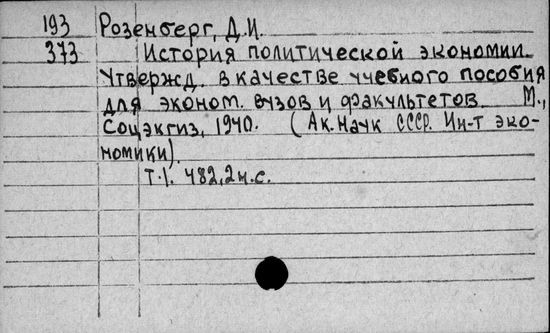 193 Розенберг, Д.И.
373 История политической экономии.
Утвержд. в качестве учебного пособия
для эконом. вузов и факультетов М.,
Соцэкгиз, 1940. (Ак. Наук СССР. Ин-т эко-
номики).
т.1. 482,2н.с.